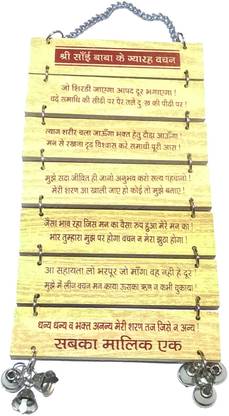 श्री साँई बाबा के ग्यारह वचन
जो शिरडी जाएगा आपद दूर भगाएगा!
चढे समाधि की सीढी पर पैर तले दुःख की पीढी पर!
त्याग शरीर चला जाऊँगा भक्त हेतु दौडा आऊँगा!
मन से रखना दृढ विश्वास करे समाधी पूरी आस!
मुझे सदा जीवित ही जानो अनुभव करो सत्य पहचानो!
मेरी शरण आ खाली जाए हो कोई तो मुझे बताए!
जैसा भाव रहा जिस मन का वैसा रुप हुआ मेरे मन का!
भार तुम्हारा मुझ पर होगा वचन न मेरा झूठा होगा!
आ सहायता लो भरपूर जो माँगा वह नही है दूर!
मुझ में लीन वचन मन काया उसका ऋण न कभी चुकाया!
धन्य धन्य व भक्त अनन्य मेरी शरण तज जिसे न अन्य!
सबका मालिक एक